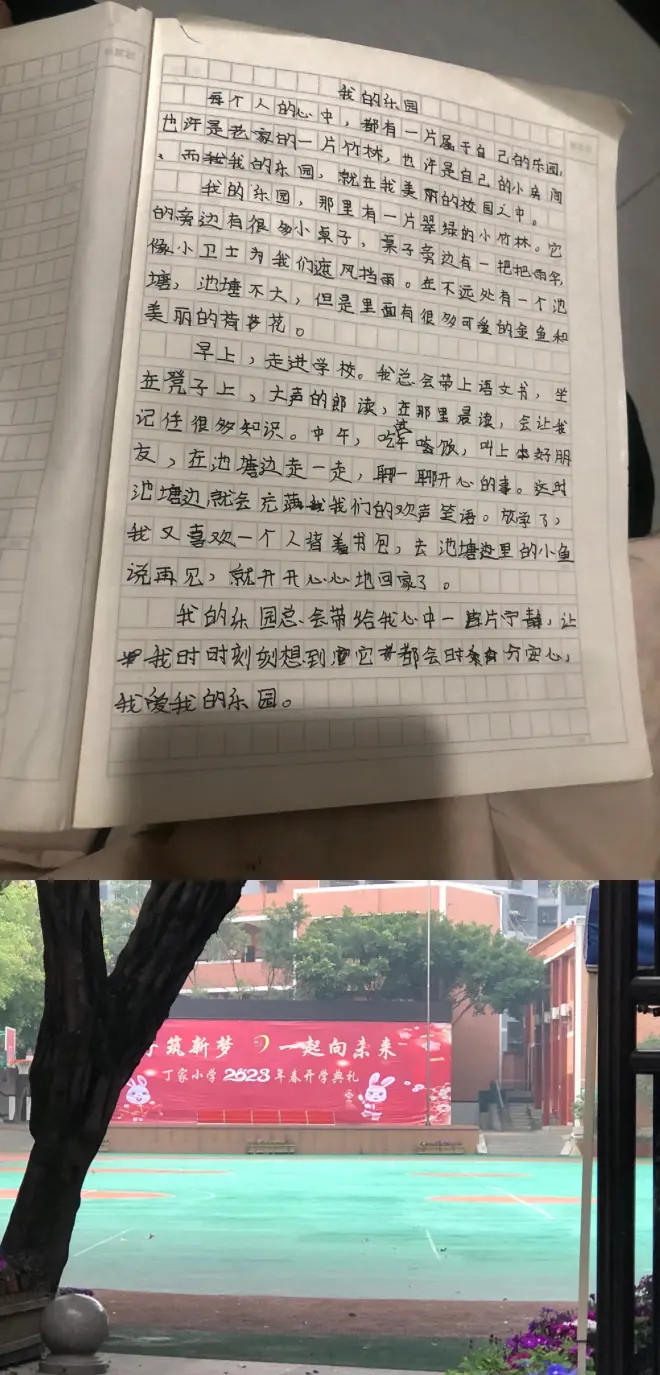 我的乐园
每个人的心中，都有一片属于自己的乐园，
也许是老家的一片竹林，也许是自己的小房间
、而我的乐园，就在我美丽的校园之中。
我的乐园，那里有一片翠绿的小竹林。它
的旁边有很多小桌子，桌子旁边有一把把雨伞，
像小卫士为我们遮风挡雨。在不远处有一个池
塘，池塘不大，但是里面有很多可爱的金鱼和
美丽的荷花。
早上，走进学校。我总会带上语文书，坐
在凳子上，大声的郎读，在那里晨读，会让我
记住很多知识。中午，吃饭，叫上好朋
友，在池塘边走一走，聊一聊开心的事。这时
池塘边就会充满我们的欢声笑语。放学了，
我又喜欢一个人背着书包，去池塘边里的小鱼
说再见，就开开心心地回家了。
我的乐园总会带给我心中一片宁静，让
我时时刻刻想到它都会时分安心，
我爱我的乐园。
筑新梦 一起向未来
丁家小学2023年春开学典礼